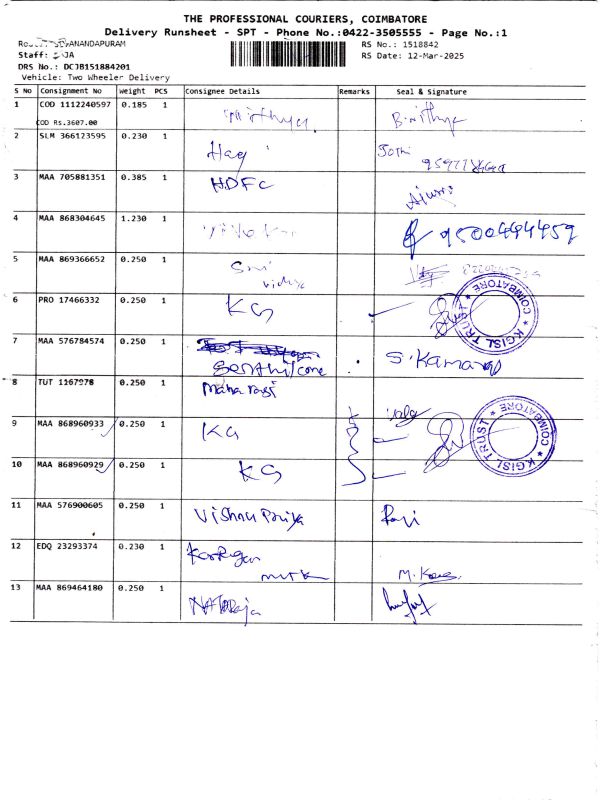 THE PROFESSIONAL COURIERS, COIMBATORE
Delivery Runsheet - SPT - Phone No.:0422-3505555 - Page No.:1
RS No.: 1518842
Staff:
RS Date: 12-Mar-2025
DRS No.: DCJB151884201
Vehicle: Two Wheeler Delivery
S No Consignment No Weight PCS Consignee Details Remarks Seal & Signature
1 COD 1112240597 0.185 1
COD Rs.3607.00
2 SLM 366123595 0.230 1 Jothi
3 MAA 705881351 0.385 1 HDFC
4 MAA 868304645 1.230 1 9500494459
5 MAA 869366652 0.250 1 Sri
vidya
6 PRO 17466332 0.250 1 KG
KGISL TRUST * COIMBATORE *
7 MAA 576784574 0.250 1 S.Kamaraj
8 TUT 1167978 0.250 1 Maha raji
9 MAA 868960933 0.250 1 KG
KGISL TRUST * COIMBATORE *
10 MAA 868960929 0.250 1 KG
11 MAA 576900605 0.250 1 Vishnu Priya Ravi
12 EDQ 23293374 0.230 1
13 MAA 869464180 0.250 1 NATARaja